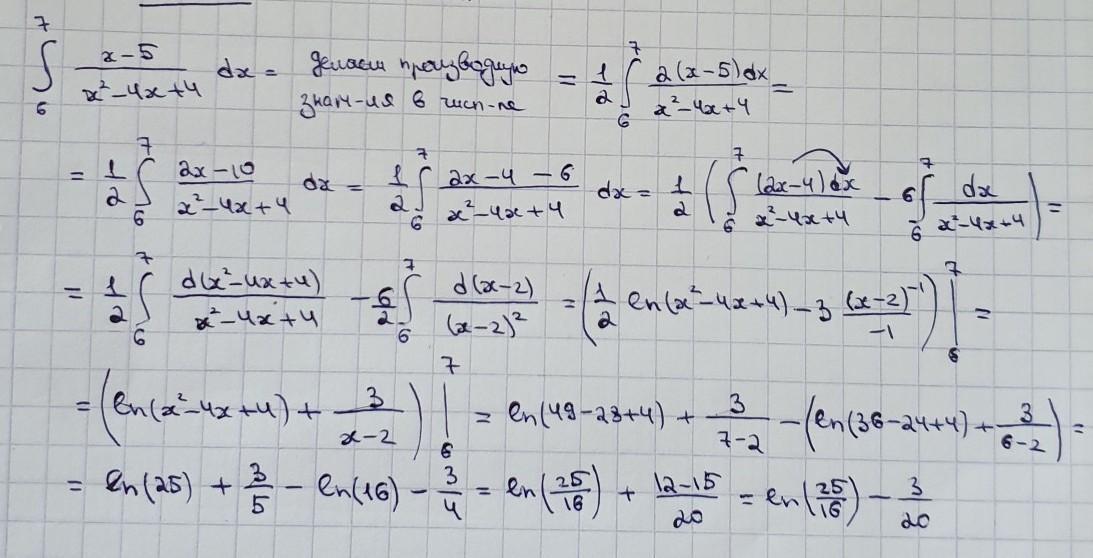 ∫₆⁷ (x-5)/(x²-4x+4) dx = делаем производную знам-ля в числ-ле = 1/2 ∫₆⁷ 2(x-5)dx/(x²-4x+4) =
= 1/2 ∫₆⁷ (2x-10)/(x²-4x+4) dx = 1/2 ∫₆⁷ (2x-4-6)/(x²-4x+4) dx = 1/2 (∫₆⁷ (2x-4)dx/(x²-4x+4) - 6∫₆⁷ dx/(x²-4x+4)) =
= 1/2 ∫₆⁷ d(x²-4x+4)/(x²-4x+4) - 6/2 ∫₆⁷ d(x-2)/(x-2)² = (1/2 ln(x²-4x+4) - 3 (x-2)⁻¹/-1) |₆⁷ =
= (ln(x²-4x+4) + 3/(x-2)) |₆⁷ = ln(49-28+4) + 3/(7-2) - (ln(36-24+4) + 3/(6-2)) =
= ln(25) + 3/5 - ln(16) - 3/4 = ln(25/16) + (12-15)/20 = ln(25/16) - 3/20